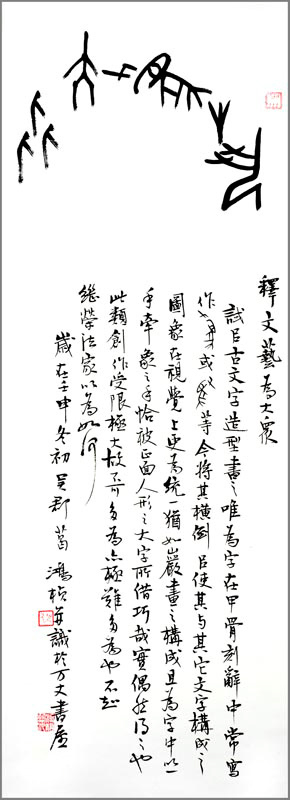 藝為大眾
釋文藝為大眾
試以古文字造型畫之唯為字在甲骨刻辭中常寫
作或等今將其橫倒以使其與其它文字構成之
圖象在視覺上更為統一猶如巖畫之構成且為字中以一
手牽象之手恰被正面人形之大字所借巧哉實偶然得之也
此類創作受限極大故不可多為亦極難多為也不知
繼榮法家以為如何
歲在壬申冬初吳郡葛鴻楨並識於万丈書屋